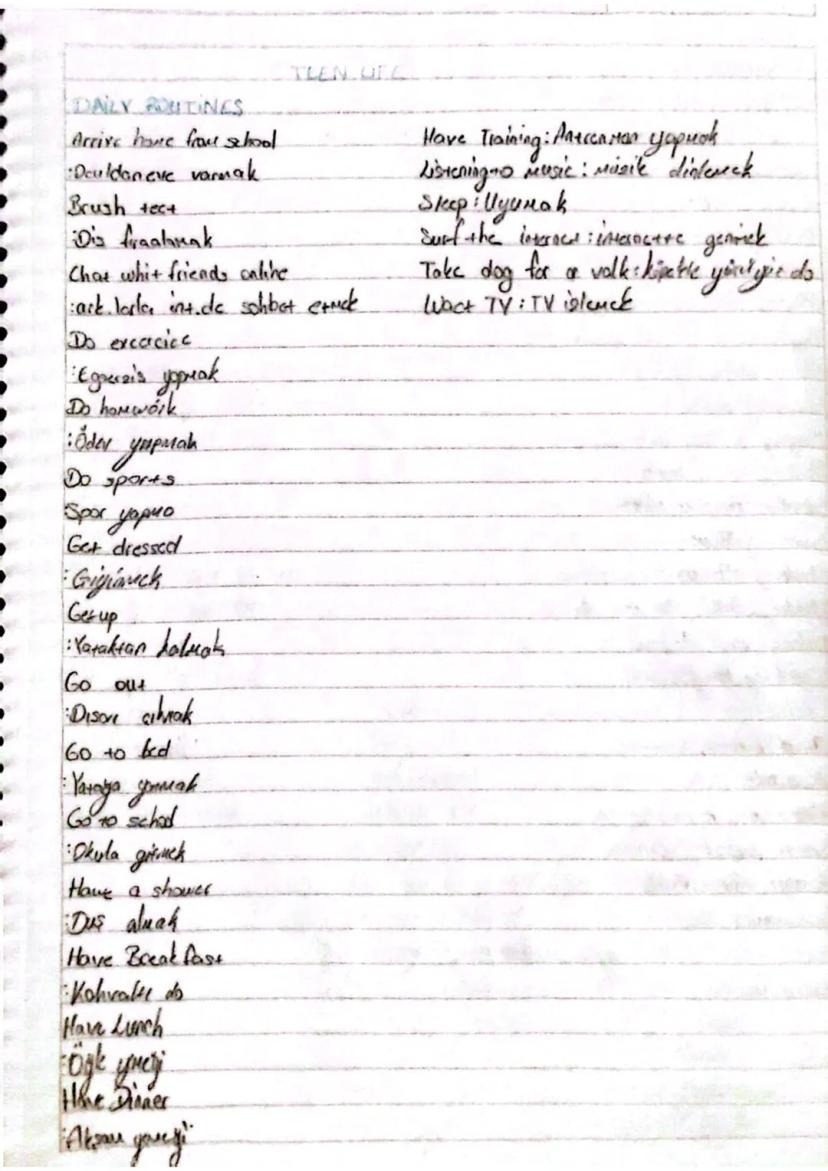 TEEN LIFE
DAILY ROUTINES
Arrive home from school
:Okuldan eve varmak
Brush teet
:Dis fıraalamak
Chat whit friends online
:ark.larla int.de sohbet etmek
Do excercice
:Egzersis yapmak
Do homwork
:Ödev yapmak
Do sports
Spor yapmo
Get dressed
:Giyinmek
Get up
:Yataktan kalmak
Go out
:Dısarı cıkmak
Go to bed
:Yatağa gırmek
Go to school
:Okula gitmek
Have a shower
:Dus almak
Have Breakfast
:Kahvaltı do
Have Lunch
:Öğle yemeği
Have Dinner
:Aksam yemeği
Have Training: Antreman yapmak
Listening to music: müzik dinlemek
Sleep: Uyumak
Surf the internet: internette gezmek
Take dog for a valk: köpekle yürüyüşe do
Wact TV: TV izlemek